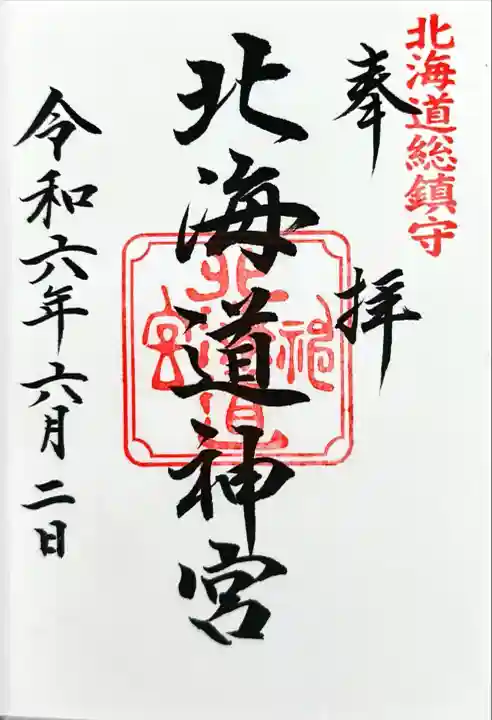 北海道総鎮守
奉拝
北海道神宮
令和六年六月二日